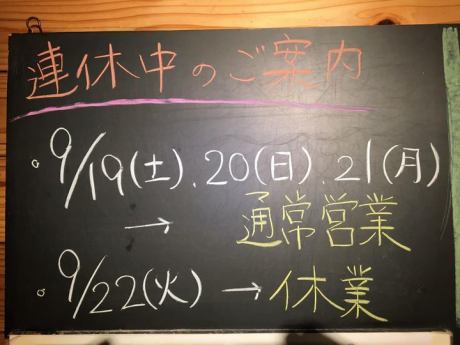 連休中のご案内
○9/19(土).20(日).21(月)
→ 通常営業
○9/22(火)→休業